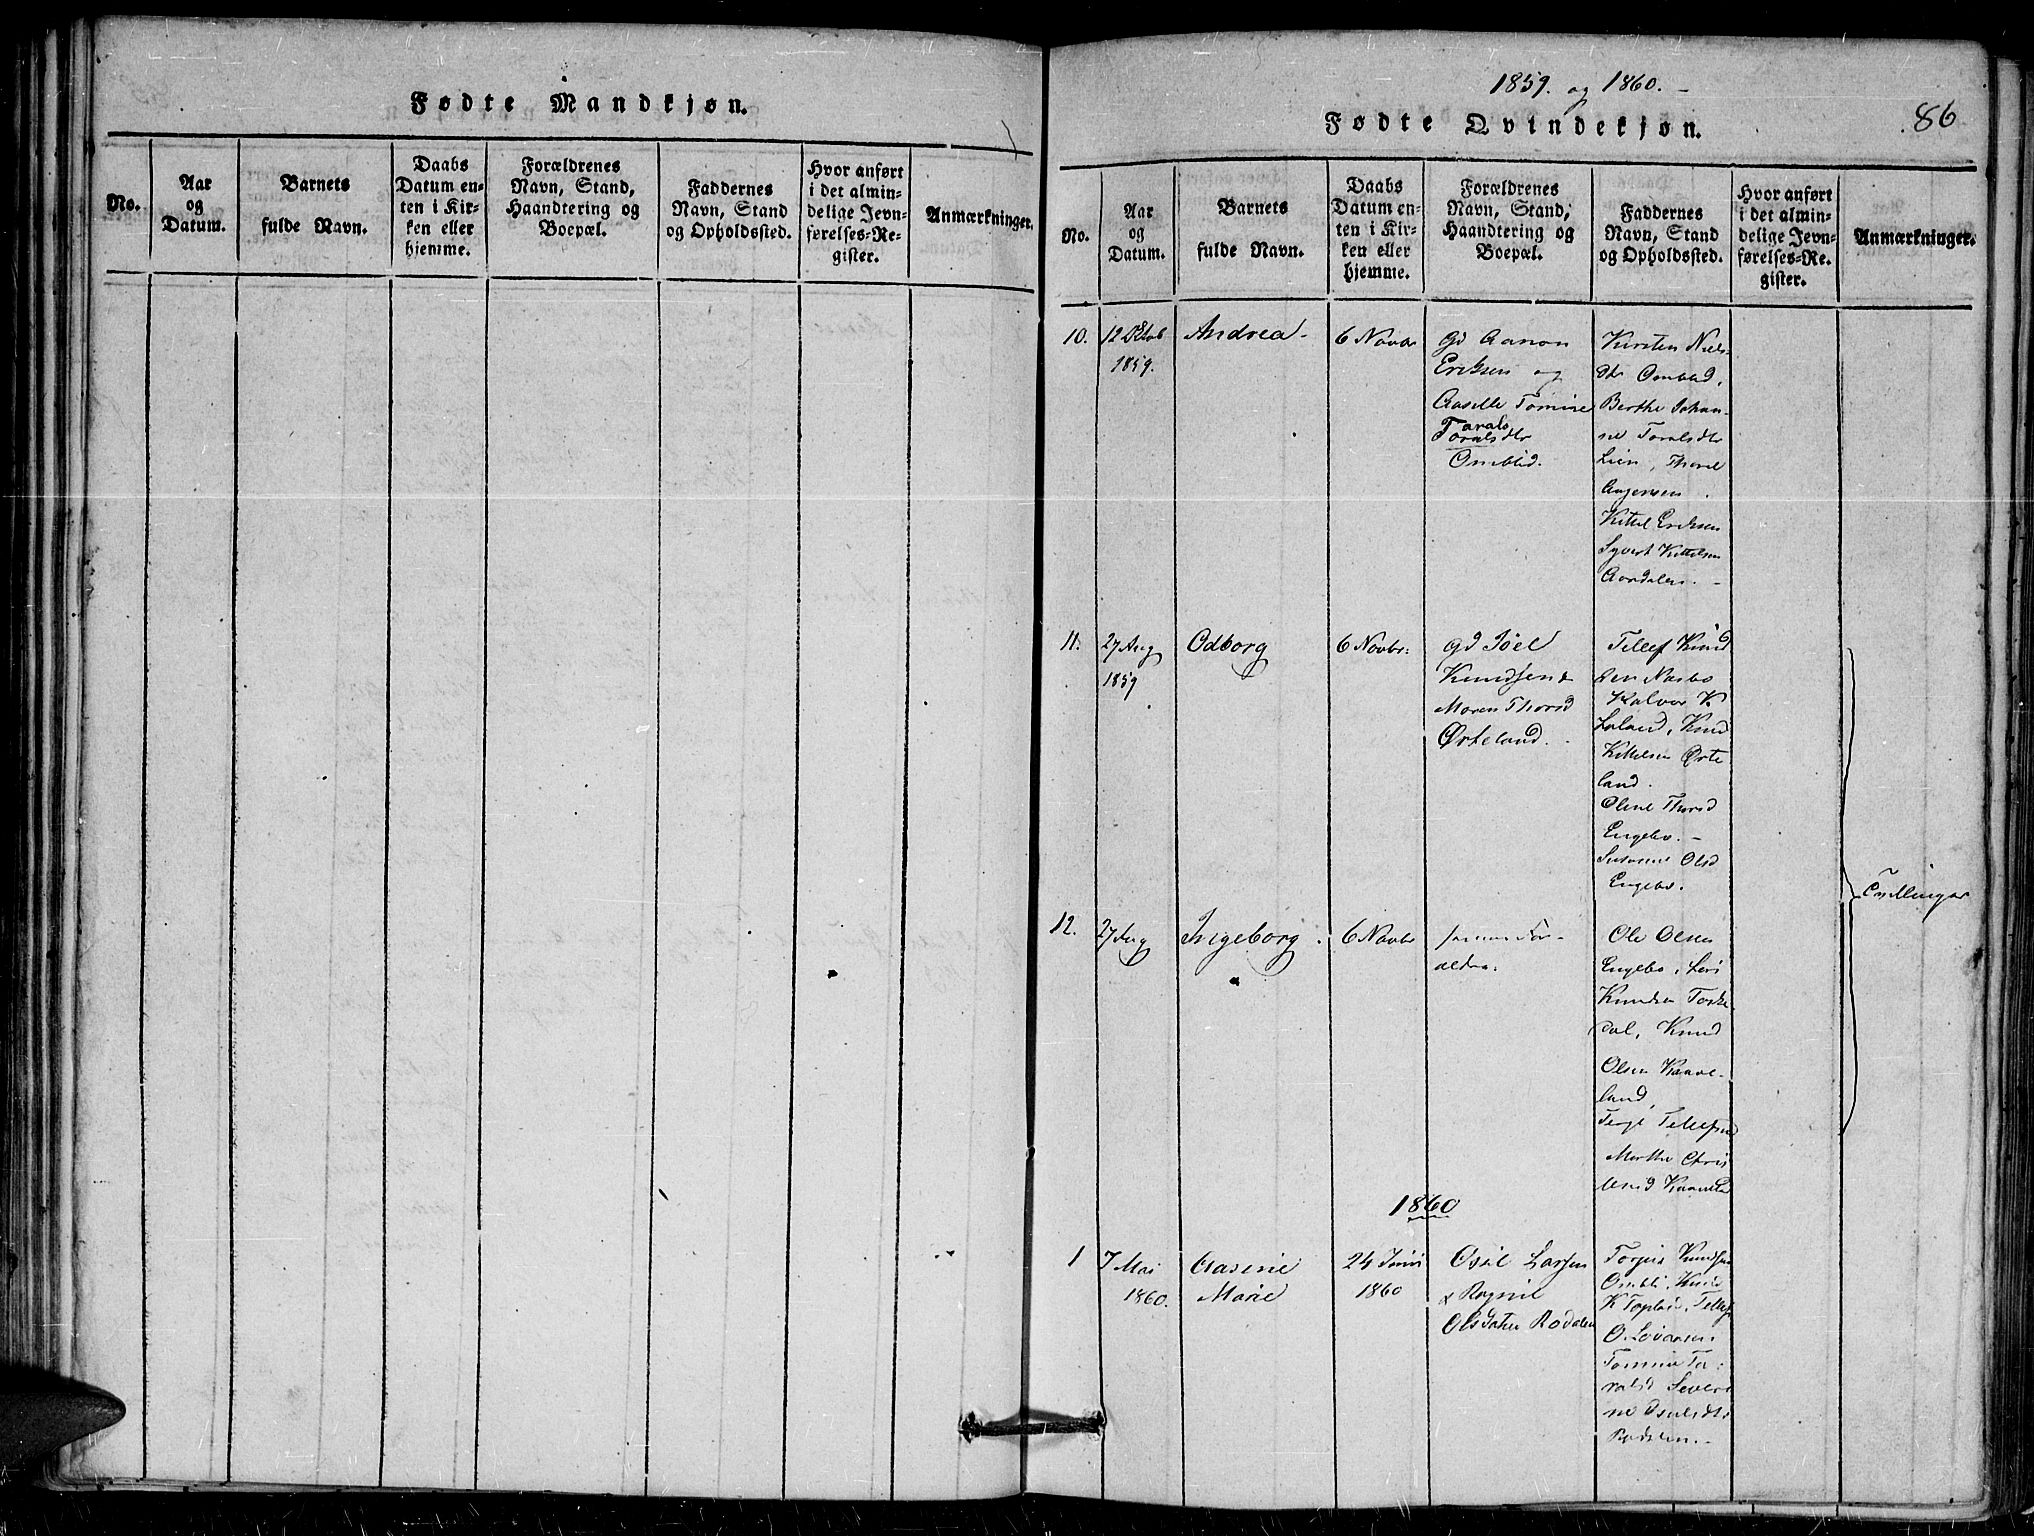 Fødte Mandkjøn.
No.
Aar
og
Datum.
Barnets
fulde Navn.
Daabs
Datum en-
ten i Kir-
ken eller
hjemme.
Forældrenes
Navn, Stand,
Haandtering og
Boepæl.
Faddernes
Navn, Stand
og Opholdssted.
Hvor anført
i det almin-
delige Jevn-
førelses-Re-
gister.
Anmærkninger.
1859. og 1860. -
Fødte Qvindekjøn.
86
No.
Aar
og
Datum.
Barnets
fulde Navn.
Daabs
Datum en-
ten i Kir-
ken eller
hjemme.
Forældrenes
Navn, Stand,
Haandtering og
Boepæl.
Faddernes
Navn, Stand
og Opholdssted.
Hvor anført
i det almin-
delige Jevn-
førelses-Re-
gister.
Anmærkninger.
10.
12 Oktob
1859.
Andrea -
6 Novbr
Gd Aanon
Eriksen og
Aaselle Tomine
Tarals
Toralsdtr
Omblid.
Kirsten Niels-
dtr Omblid,
Berthe Johan-
ne Toralsdtr
Lien, Thorel
Aagensen.
Kittel Eriksen
Syvert Kittelsen
Aardalen. -
11.
27 Aug
1859
Odborg
6 Novbr:
Gd Joel
Knudsen &
Maren Thorsd
Ørteland. -
Tellef Knud
sen Næsbø
Halvor K.
Løland, Knud
Kittelsen Ørte
land.
Olene Thorsd
Engebo. -
Susanne Olsd
Engebo.
Tvillinger
12.
27 Aug
Ingeborg.
6 Novbr
samme For-
ældre.
Ole Olsen
Engebo, Lars
Knudsen Toske
dal, Knud
Olsen Kaave-
land,
Terje Tellefsen
Marthe Chris
tensd Kaavela
1860
1
7 Mai
1860.
Aasene
Marie
24 Juni
1860
Osul Larsen
& Ragnil
Olsdater Rodalen
Torjus Knudsen
Ombli, Knud
K Topland, Tellef
O. Løvaasen.
Tomine To-
ralsd Severi
ne Osulsdtr
Rodalen. -